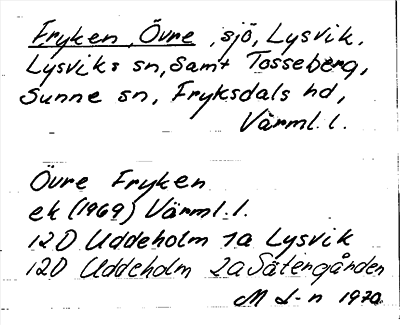 Fryken, Övre, sjö, Lysvik,
Lysviks sn, samt Tosseberg,
Sunne sn, Fryksdals hd,
Värml. l.
Övre Fryken
ek (1969) Värml. l.
12D Uddeholm 1a Lysvik
12D Uddeholm 2a Sätergården
M L-n 1970.